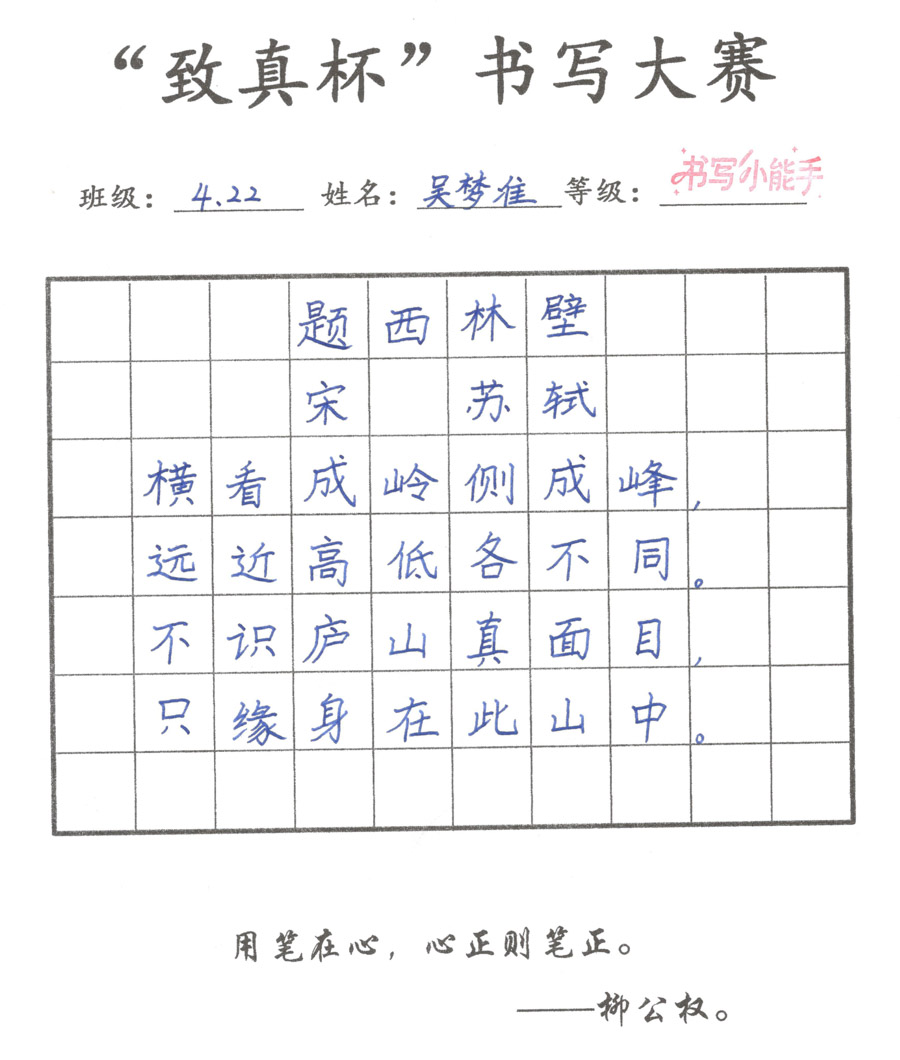 “致真杯”书写大赛
班级：4.22 姓名：吴梦佳 等级：书写小能手
题西林壁
宋 苏轼
横看成岭侧成峰，
远近高低各不同。
不识庐山真面目，
只缘身在此山中。
用笔在心，心正则笔正。
——柳公权。